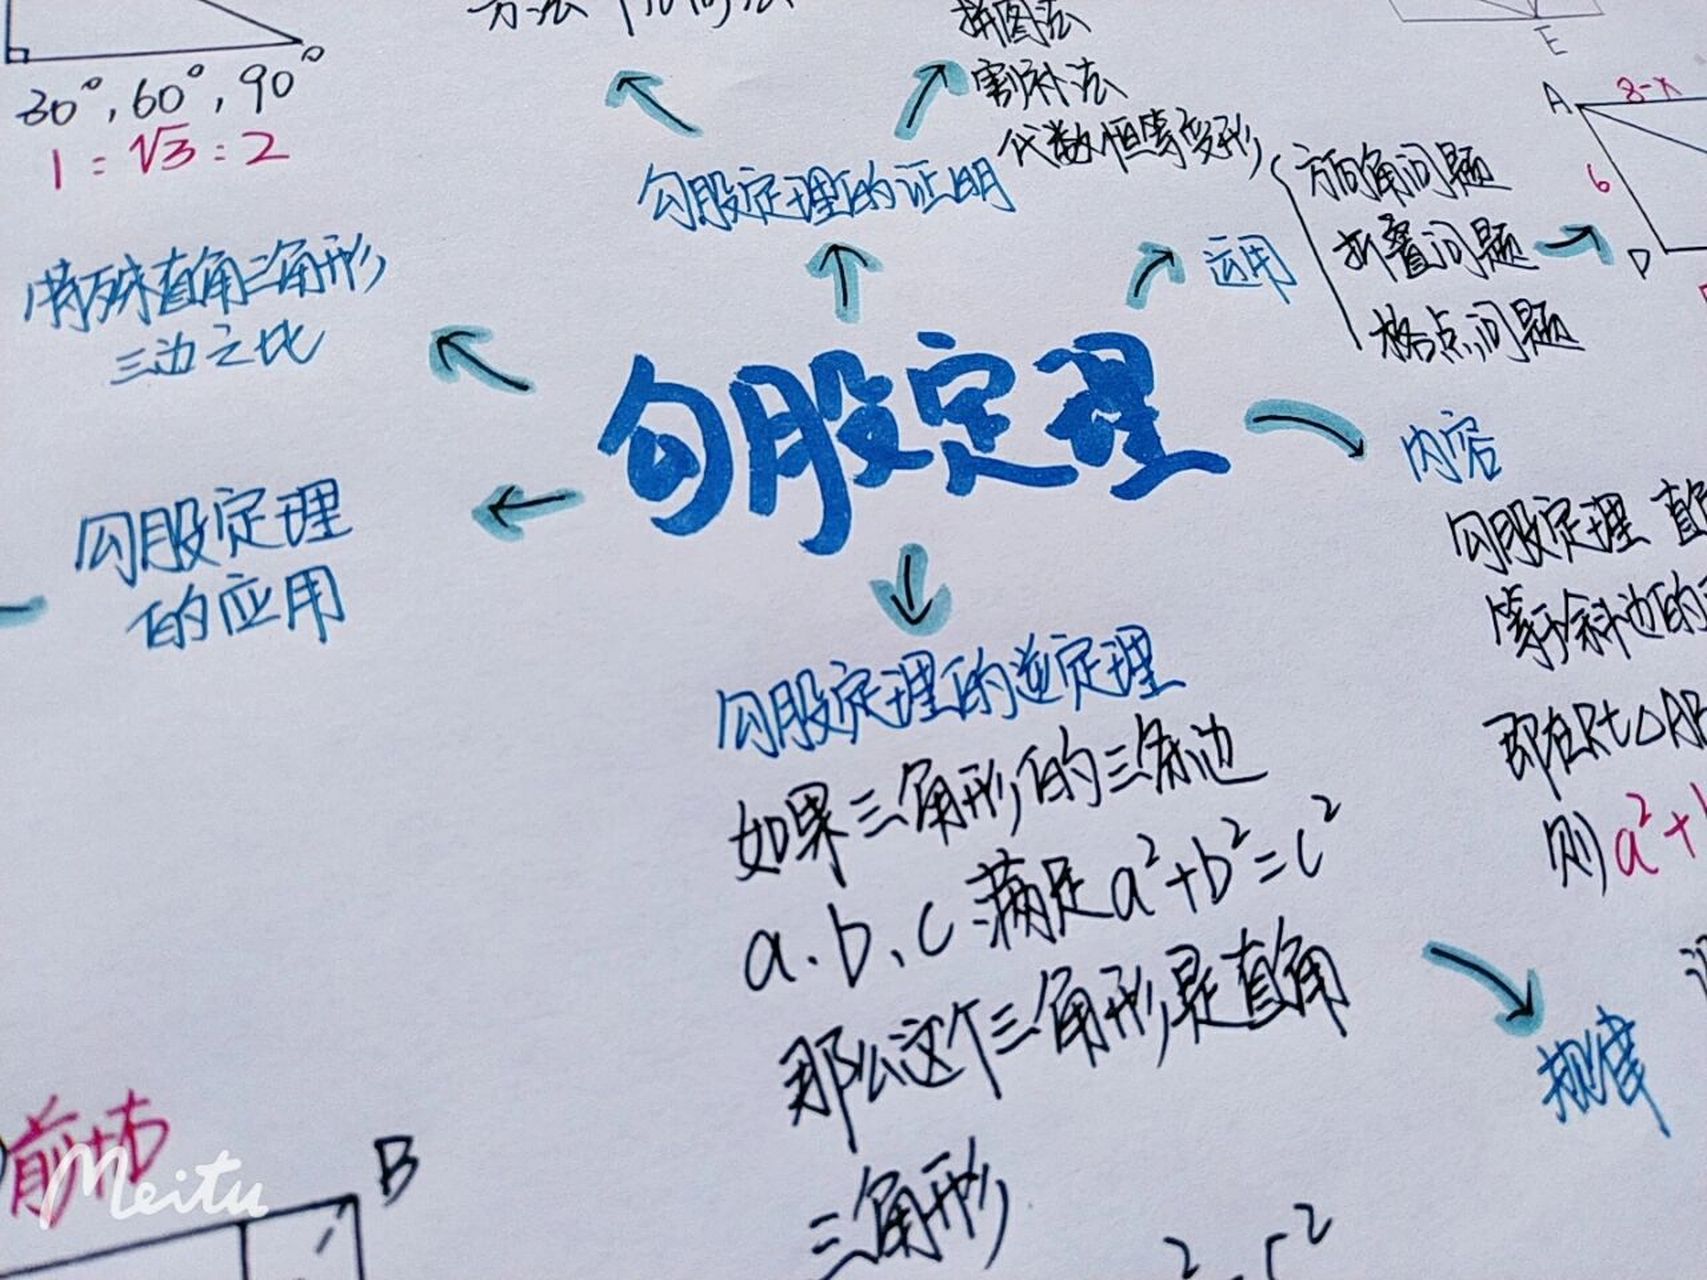 30°, 60°, 90°
1 : √3 : 2
特殊直角三角形
三边之比
勾股定理
的应用
拼图法
割补法
代数恒等变形
勾股定理的证明
运用
方向角问题
折叠问题
格点问题
E
A
8-x
6
D
勾股定理
内容
勾股定理 直角
等于斜边的
即在Rt△AB
则a²+
勾股定理的逆定理
如果三角形的三条边
a.b、c满足a²+b²=c²
那么这个三角形是直角
三角形
规律
前
B
Meitu